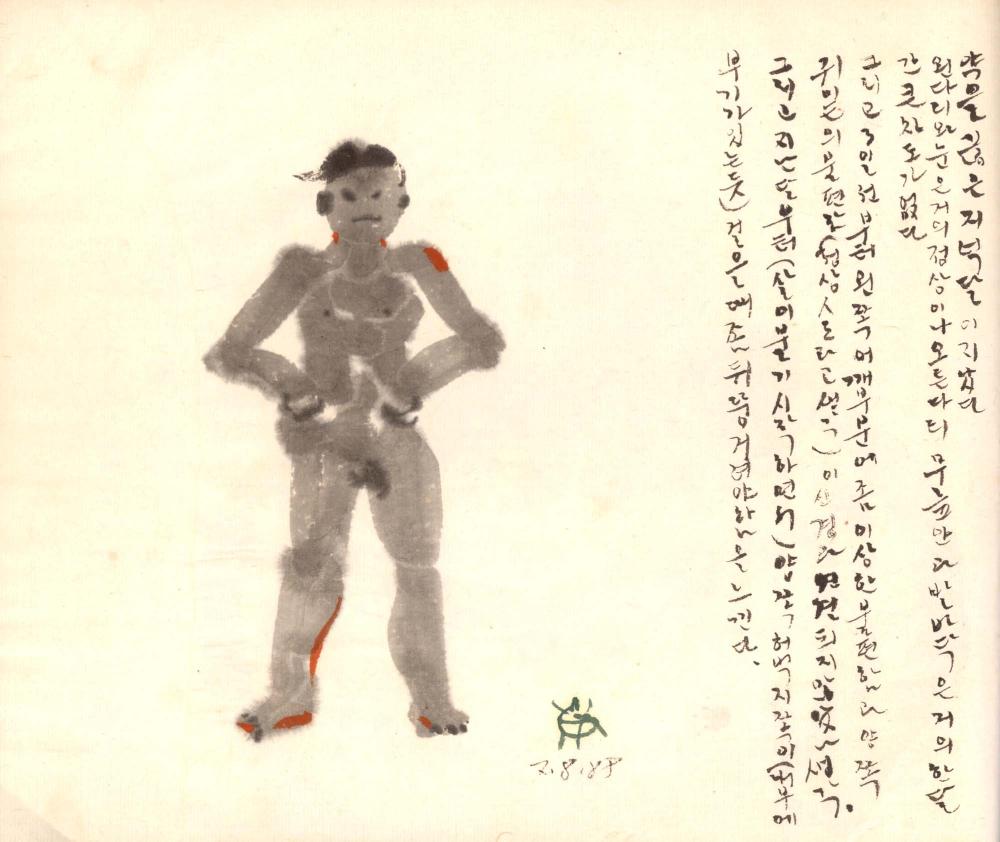 약을 끊은지 넉달이 지났다
왼다리와 눈은 거의 정상이나 오른다리 무릎안과 발바닥은 거의 한달
간 큰 차도가 없다
그리고 3일전부터 왼쪽 어깨부분에 좀 이상한 불편함과 양쪽
귀밑의 불편감 (정상시라고 생각) 이 신경과 연결되지 않았나 생각.
그리고 지난달부터 (살이 붙기 시작하면서) 양쪽 허벅지쪽이 (피부에
부기가 있는듯) 걸을때 좀 뒤뚱거려야함을 느낀다.